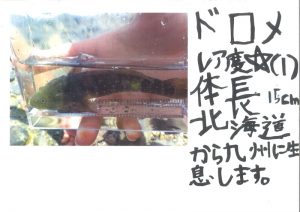 ドロメ
レア度☆(1)
体長15cm
北海道
から九州に生
息します。